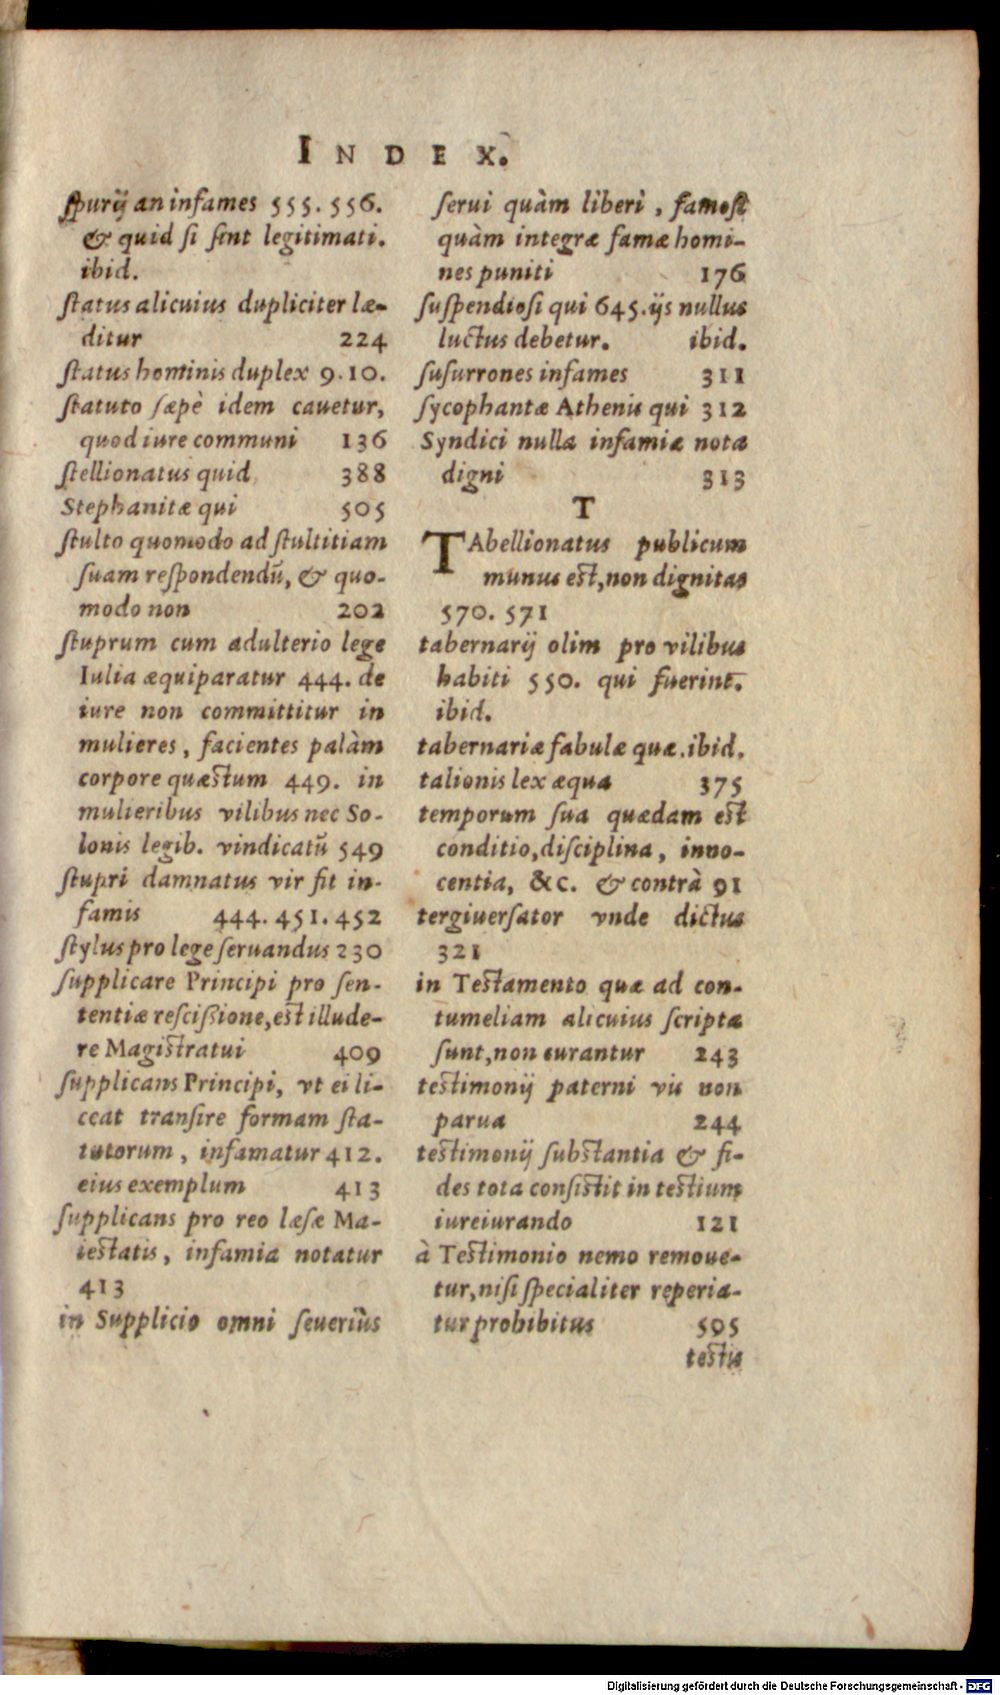 INDEX.
spurij an infames 555. 556.
& quid si sint legitimati.
ibid.
status alicuius dupliciter læ-
ditur 224
status hominis duplex 9. 10.
statuto sæpè idem cauetur,
quod iure communi 136
stellionatus quid 388
Stephanitæ qui 505
stulto quomodo ad stultitiam
suam respondendũ, & quo-
modo non 202
stuprum cum adulterio lege
Iulia æquiparatur 444. de
iure non committitur in
mulieres, facientes palàm
corpore quæstum 449. in
mulieribus vilibus nec So-
lonis legib. vindicatũ 549
stupri damnatus vir fit in-
famis 444. 451. 452
stylus pro lege seruandus 230
supplicare Principi pro sen-
tentiæ rescißione, est illude-
re Magistratui 409
supplicans Principi, vt ei li-
ceat transire formam sta-
tutorum, infamatur 412.
eius exemplum 413
supplicans pro reo læsæ Ma-
iestatis, infamia notatur
413
in Supplicio omni seueriùs
serui quàm liberi, famosi
quàm integræ famæ homi-
nes puniti 176
suspendiosi qui 645. ijs nullus
luctus debetur. ibid.
susurrones infames 311
sycophantæ Athenis qui 312
Syndici nulla infamiæ nota
digni 313
T
TAbellionatus publicum
munus est, non dignitas
570. 571
tabernarij olim pro vilibus
habiti 550. qui fuerint.
ibid.
tabernariæ fabulæ quæ. ibid.
talionis lex æqua 375
temporum sua quædam est
conditio, disciplina, inno-
centia, &c. & contrà 91
tergiuersator vnde dictus
321
in Testamento quæ ad con-
tumeliam alicuius scripta
sunt, non curantur 243
testimonij paterni vis non
parua 244
testimonij substantia & fi-
des tota consistit in testium
iureiurando 121
à Testimonio nemo remoue-
tur, nisi specialiter reperia-
tur prohibitus 595
testis
Digitalisierung gefördert durch die Deutsche Forschungsgemeinschaft - DFG